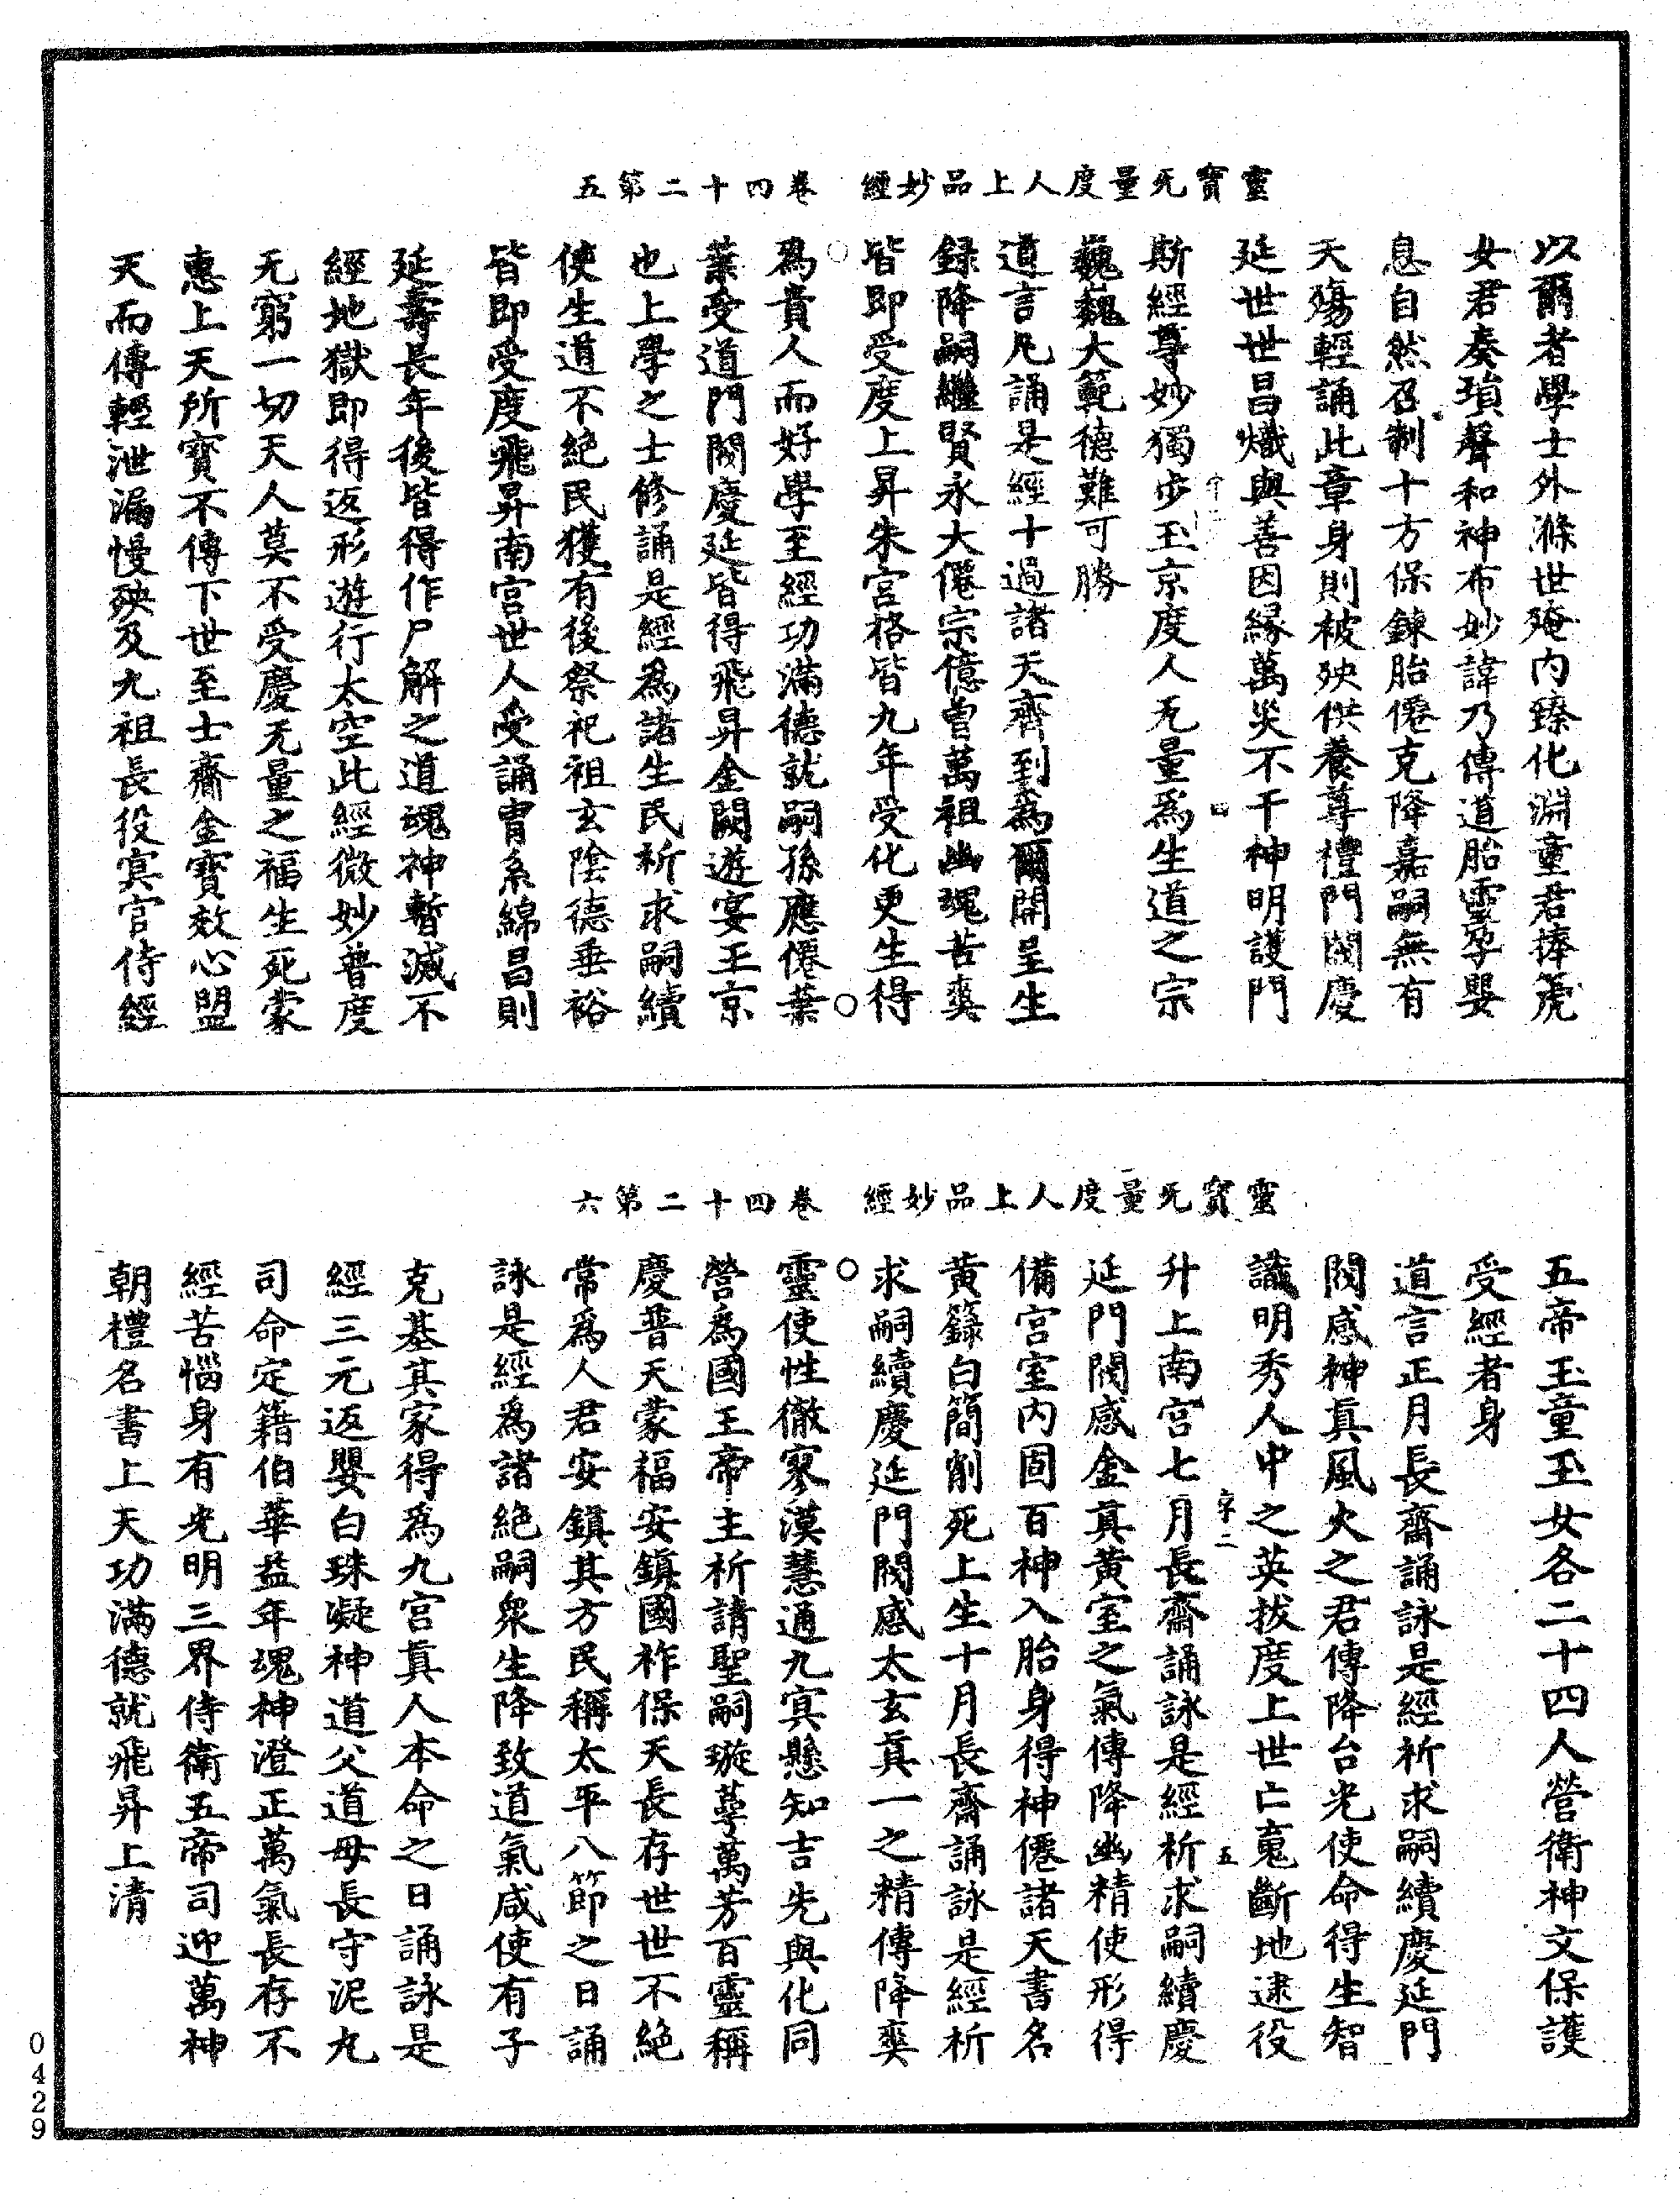 靈寶无量度人上品妙經　卷四十二第五
以爾者學士外滌世殗內臻化淵童君捧箎
女君奏瑣聲和神布妙諱乃傳道胎靈孕嬰
息自然召制十方保鍊胎僊克降嘉嗣無有
夭殤輕誦此章身則被殃供養尊禮門閥慶
延世世昌熾與善因緣萬災不干神明護門
斯經尊妙獨步玉京度人无量爲生道之宗
巍巍大範德難可勝
道言凡誦是經十過諸天齊到爲爾開呈生
錄降嗣繼賢永大僊宗億曾萬祖幽魂苦爽
皆即受度上昇朱宮格皆九年受化更生得
爲貴人而好學至經功滿德就嗣孫應僊葉
葉受道門閥慶延皆得飛昇金闕遊宴玉京
也上學之士修誦是經爲諸生民祈求嗣續
使生道不絕民獲有後祭祀祖玄陰德垂裕
皆即受度飛昇南宮世人受誦胄系綿昌則
延壽長年後皆得作尸解之道魂神暫滅不
經地獄即得返形遊行太空此經微妙普度
无窮一切天人莫不受慶无量之福生死蒙
惠上天所寶不傳下世至士齎金寶效心盟
天而傳輕泄漏慢殃及九祖長役寘官侍經
字二
四
靈寶无量度人上品妙經　卷四十二第六
五帝玉童玉女各二十四人營衛神文保護
受經者身
道言正月長齋誦詠是經祈求嗣續慶延門
閥感神眞風火之君傳降台光使命得生智
識明秀人中之英拔度上世亡䰟斷地逮役
升上南宮七月長齋誦詠是經祈求嗣續慶
延門閥感金真黃室之氣傳降幽精使形得
備宮室內固百神入胎身得神僊諸天書名
黃籙白簡削死上生十月長齋誦詠是經祈
求嗣續慶延門閥感太玄眞一之精傳降爽
靈使性徹寥漠慧通九冥懸知吉先與化同
營爲國王帝主祈請聖嗣璇萼萬芳百靈稱
慶普天蒙福安鎮國祚保天長存世世不絕
常爲人君安鎮其方民稱太平八節之日誦
詠是經爲諸絕嗣衆生降致道氣咸使有子
克基其家得爲九宮眞人本命之日誦詠是
經三元返嬰白珠凝神道父道母長守泥丸
司命定籍伯華益年魂神澄正萬氣長存不
經苦惱身有光明三界侍衛五帝司迎萬神
朝禮名書上天功滿德就飛昇上清
字二
五
0429